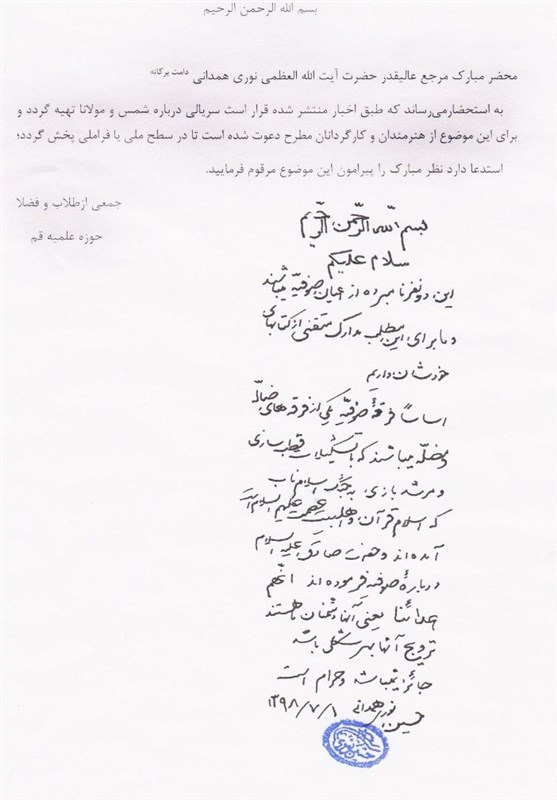 بسم الله الرحمن الرحیم
محضر مبارک مرجع عالیقدر حضرت آیت الله العظمی نوری همدانی دامت برکاته
به استحضارمی‌رساند که طبق اخبار منتشر شده قرار است سریالی درباره شمس و مولانا تهیه گردد و
برای این موضوع از هنرمندان و کارگردانان مطرح دعوت شده است تا در سطح ملی یا فراملی پخش گردد؛
استدعا دارد نظر مبارک را پیرامون این موضوع مرقوم فرمایید.
جمعی ازطلاب و فضلا
حوزه علمیه قم
بسم الله الرحمن الرحیم
سلام علیکم
این دو نفر نامبرده از اعیان صوفیه میباشند
و ما برای این مطلب مدارک متقنی از کتابهای
خودشان داریم
اساساً فرقهٔ صوفیه یکی از فرقه های ضالّه
و مضلّه میباشند که با تشکیلات قطب سازی
و مرشد بازی به جنگ اسلام ناب
که اسلام قرآن و اهلبیت عصمت علیهم السلام است
آمده اند و حضرت صادق علیه السلام
دربارهٔ صوفیه فرموده اند انّهم
اعدائنا یعنی آنها دشمنان ما هستند
ترویج آنها بهر شکلی باشد
جائز نمیباشد و حرام است
حسین نوری همدانی ۱۳۹۸/۷/۱